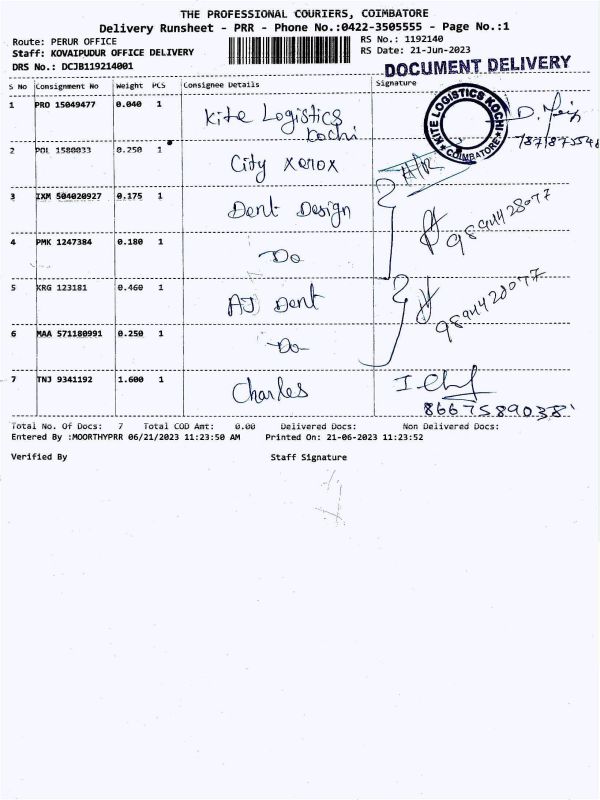 THE PROFESSIONAL COURIERS, COIMBATORE
Delivery Runsheet - PRR - Phone No.:0422-3505555 - Page No.:1
Route: PERUR OFFICE RS No.: 1192140
Staff: KOVAIPUDUR OFFICE DELIVERY RS Date: 21-Jun-2023
DRS No.: DCJB119214001 DOCUMENT DELIVERY
S No Consignment No Weight PCS Consignee Details Signature
1 PRO 15049477 0.040 1 Kite Logistics
Kochi
KITE LOGISTICS KOCHI
★ COIMBATORE ★
2 POL 1580033 0.250 1 City Xerox
3 IXM 504020927 0.175 1 Dent Design
9894428077
4 PMK 1247384 0.180 1 Do
5 KRG 123181 0.460 1 AJ Dent
9894428077
6 MAA 571180991 0.250 1 Do
7 TNJ 9341192 1.600 1 Charles
8667589038
Total No. Of Docs: 7 Total COD Amt: 0.00 Delivered Docs: Non Delivered Docs:
Entered By :MOORTHYPRR 06/21/2023 11:23:50 AM Printed On: 21-06-2023 11:23:52
Verified By Staff Signature